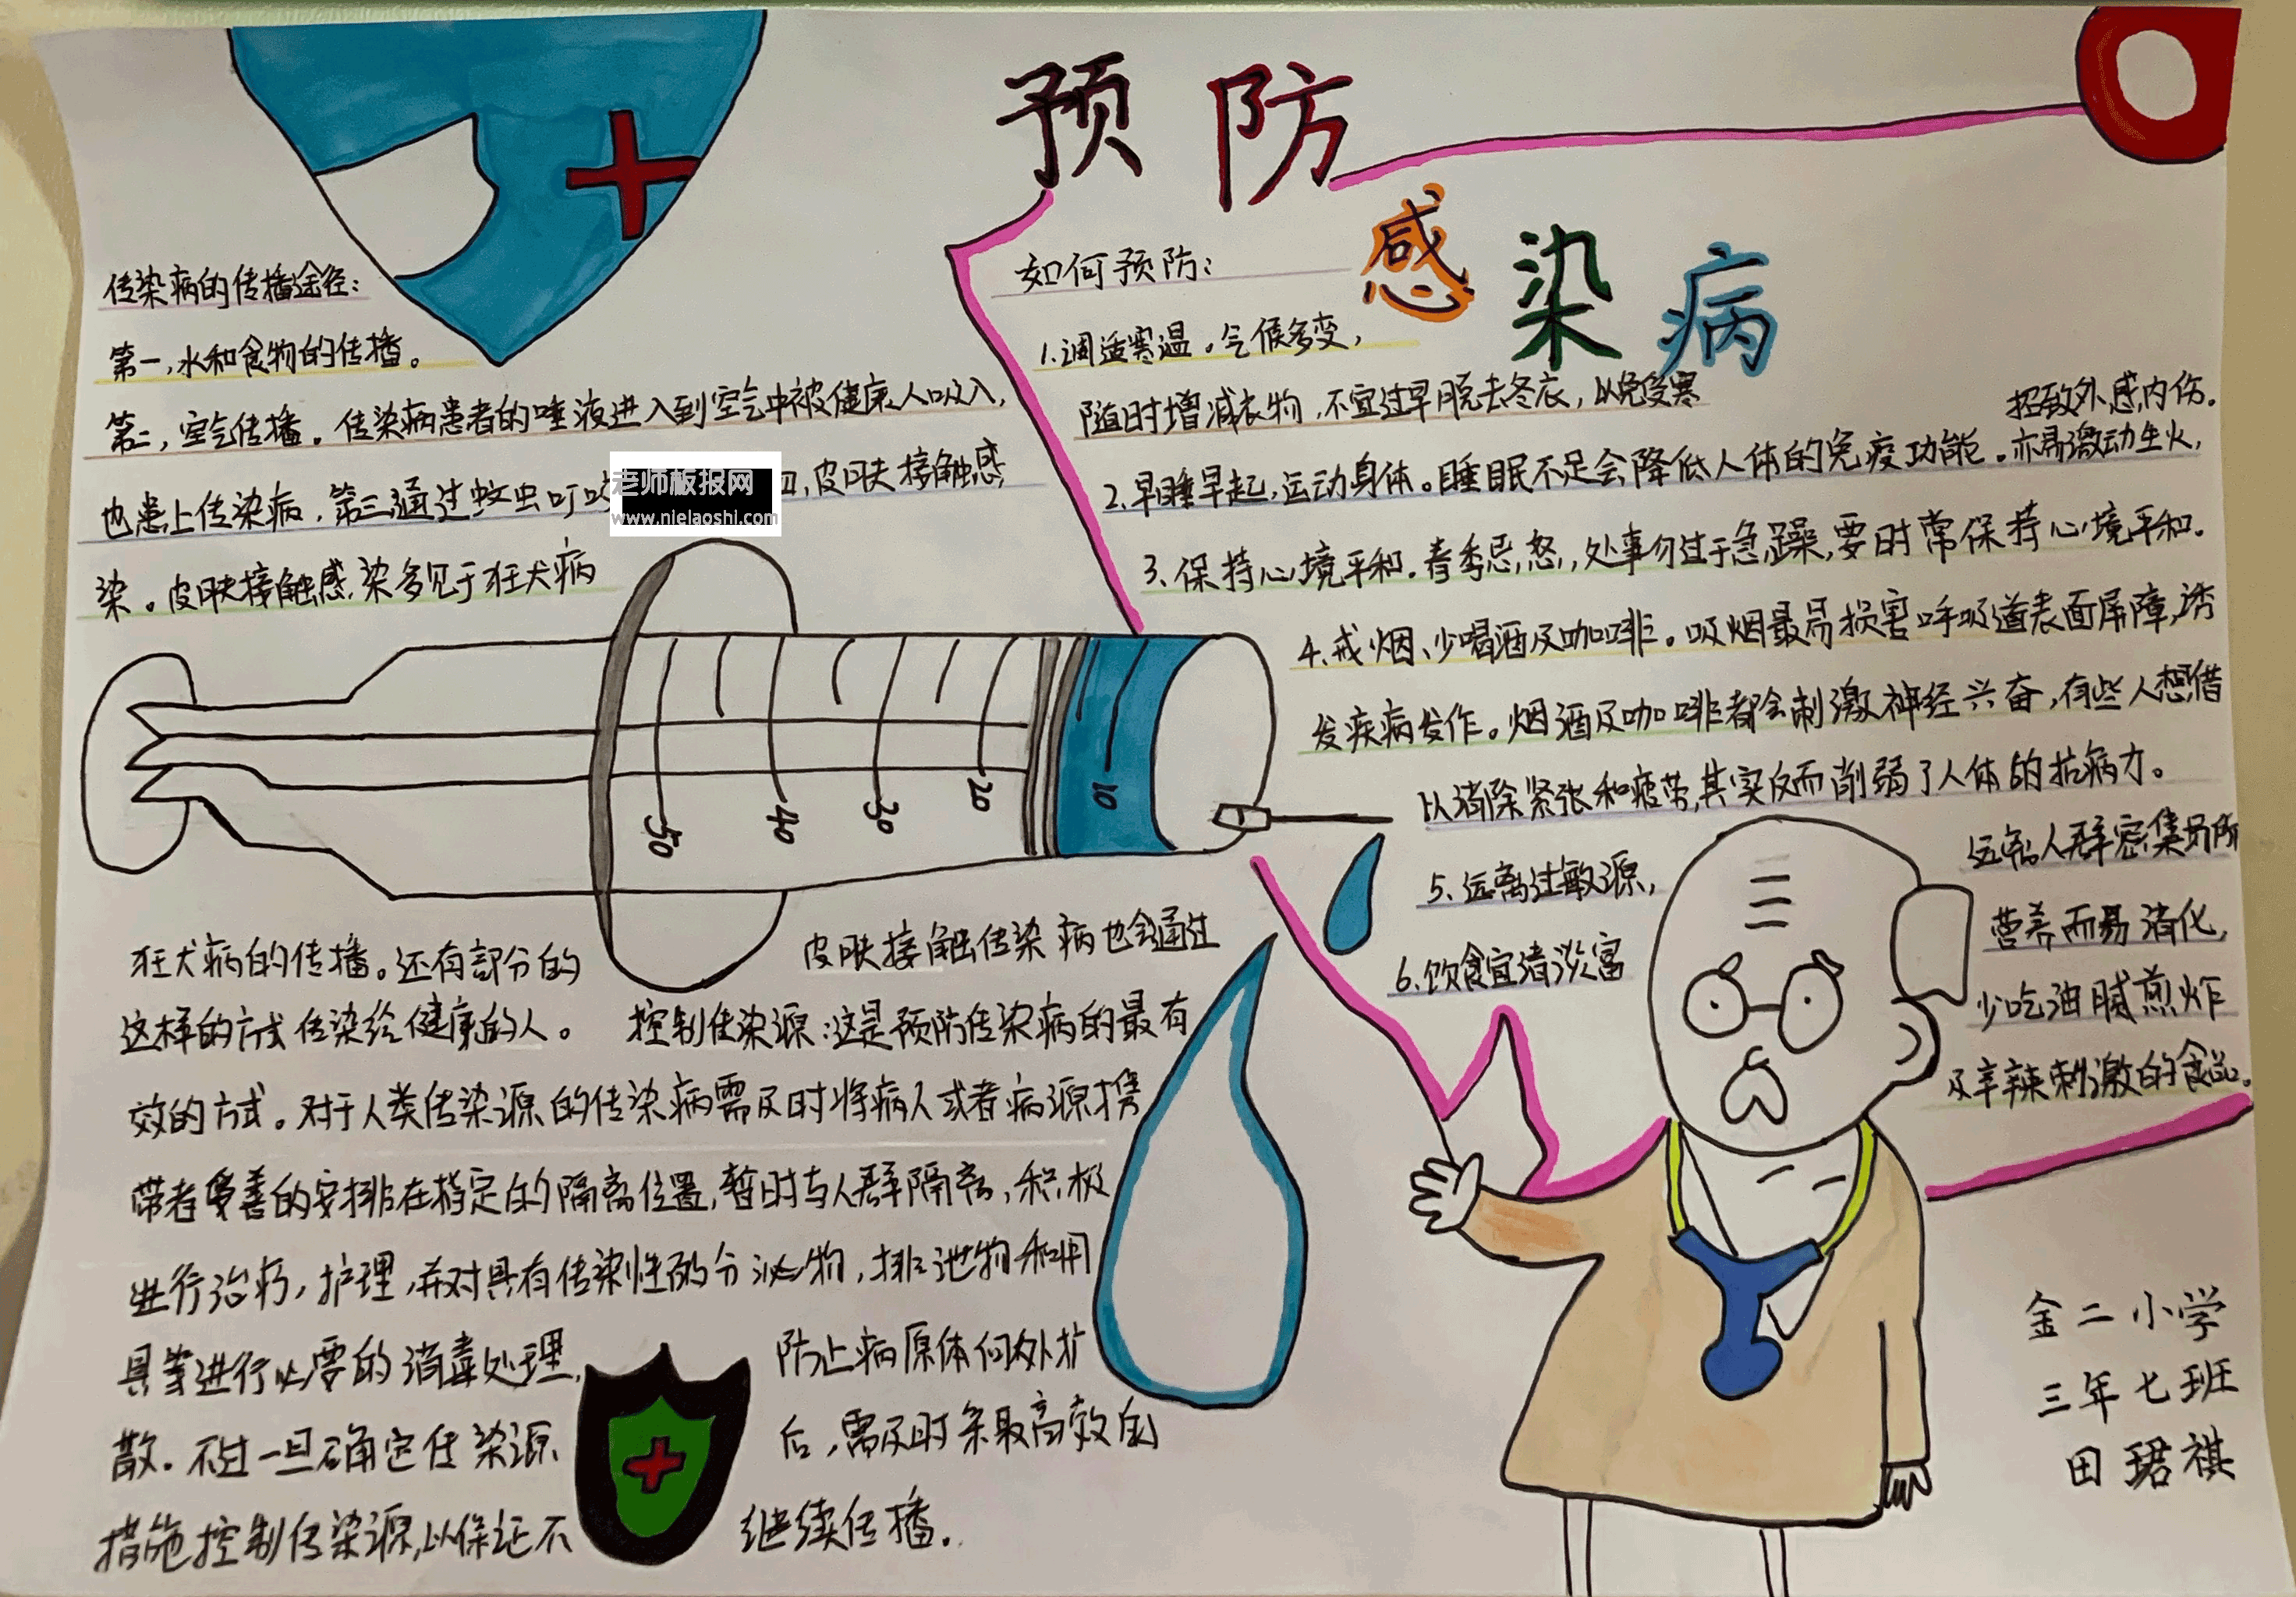 预防
感染病
传染病的传播途径：
第一，水和食物的传播。
第二，空气传播。传染病患者的唾液进入到空气中被健康人吸入，
也患上传染病，第三通过蚊虫叮
老师板报网
www.nielaoshi.com
，皮肤接触感
染。皮肤接触感染多见于狂犬病
50
40
30
20
10
狂犬病的传播。还有部分的
皮肤接触传染病也会通过
这样的方式传染给健康的人。
控制传染源：这是预防传染病的最有
效的方式。对于人类传染源的传染病需及时将病人或者病源携
带者妥善的安排在指定的隔离位置，暂时与人群隔离，积极
进行治疗，护理，并对具有传染性的分泌物，排泄物和用
具等进行必要的消毒处理，
防止病原体向外扩
散。不过一旦确定传染源
后，需及时采取高效的
措施控制传染源，以保证不
继续传播。
如何预防：
1.调适寒温。气候多变，
随时增减衣物，不宜过早脱去冬衣，以免受寒
招致外感内伤。
2.早睡早起，运动身体。睡眠不足会降低人体的免疫功能。亦易激动生火，
3、保持心境平和。春季忌怒，处事勿过于急躁，要时常保持心境平和。
4、戒烟、少喝酒及咖啡。吸烟最易损害呼吸道表面屏障，诱
发疾病发作。烟酒及咖啡都会刺激神经兴奋，有些人想借
以消除紧张和疲劳，其实反而削弱了人体的抗病力。
5、远离过敏源，
远离人群密集场所
6、饮食宜清淡富
营养而易消化，
少吃油腻煎炸
及辛辣刺激的食品。
金二小学
三年七班
田珺祺